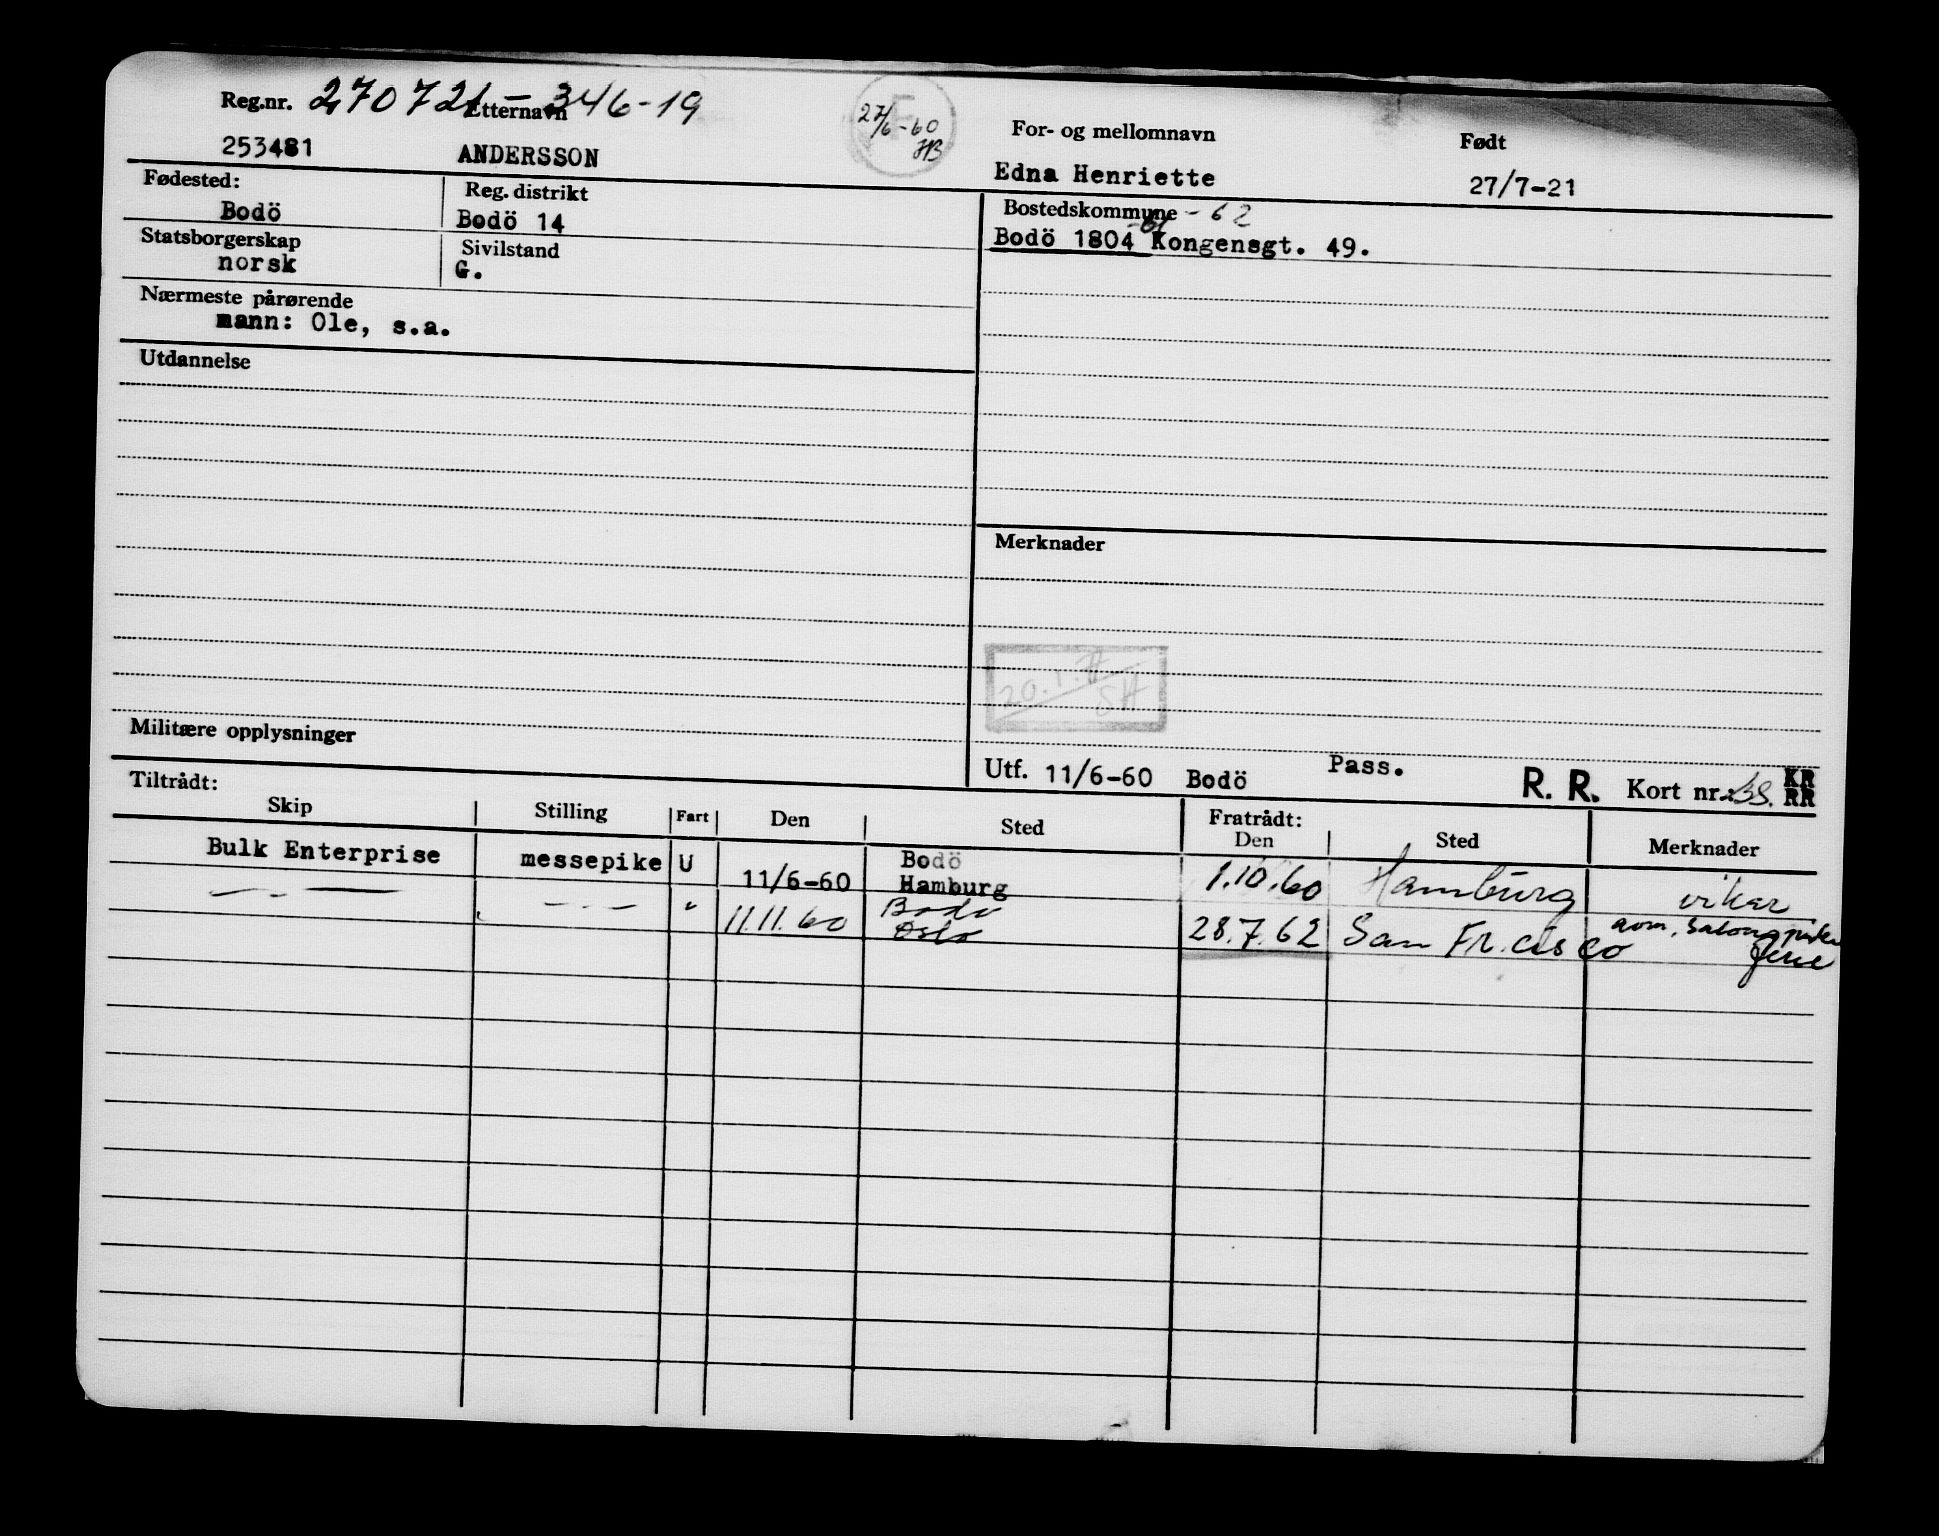 Reg.nr. 270721-346-19 Etternavn For- og mellomnavn Født
27/6-60 HB
253481 ANDERSSON Edna Henriette 27/7-21
Fødested: Reg. distrikt Bostedskommune - 62
Bodö Bodö 14 Bodö 1804 Kongensgt. 49.
Statsborgerskap Sivilstand
norsk G.
Nærmeste pårørende
mann: Ole, s.a.
Utdannelse
Merknader
Militære opplysninger
Utf. 11/6-60 Bodö Pass. R. R. Kort nr. KR RR
Tiltrådt: Fratrådt:
Skip Stilling Fart Den Sted Den Sted Merknader
Bulk Enterprise messepike U 11/6-60 Bodö Hamburg 1.10.60 Hamburg vikar
— - — - - — " 11.11.60 Bodø Oslo 28.7.62 San Fr.cisco avm. Salongpike ferie